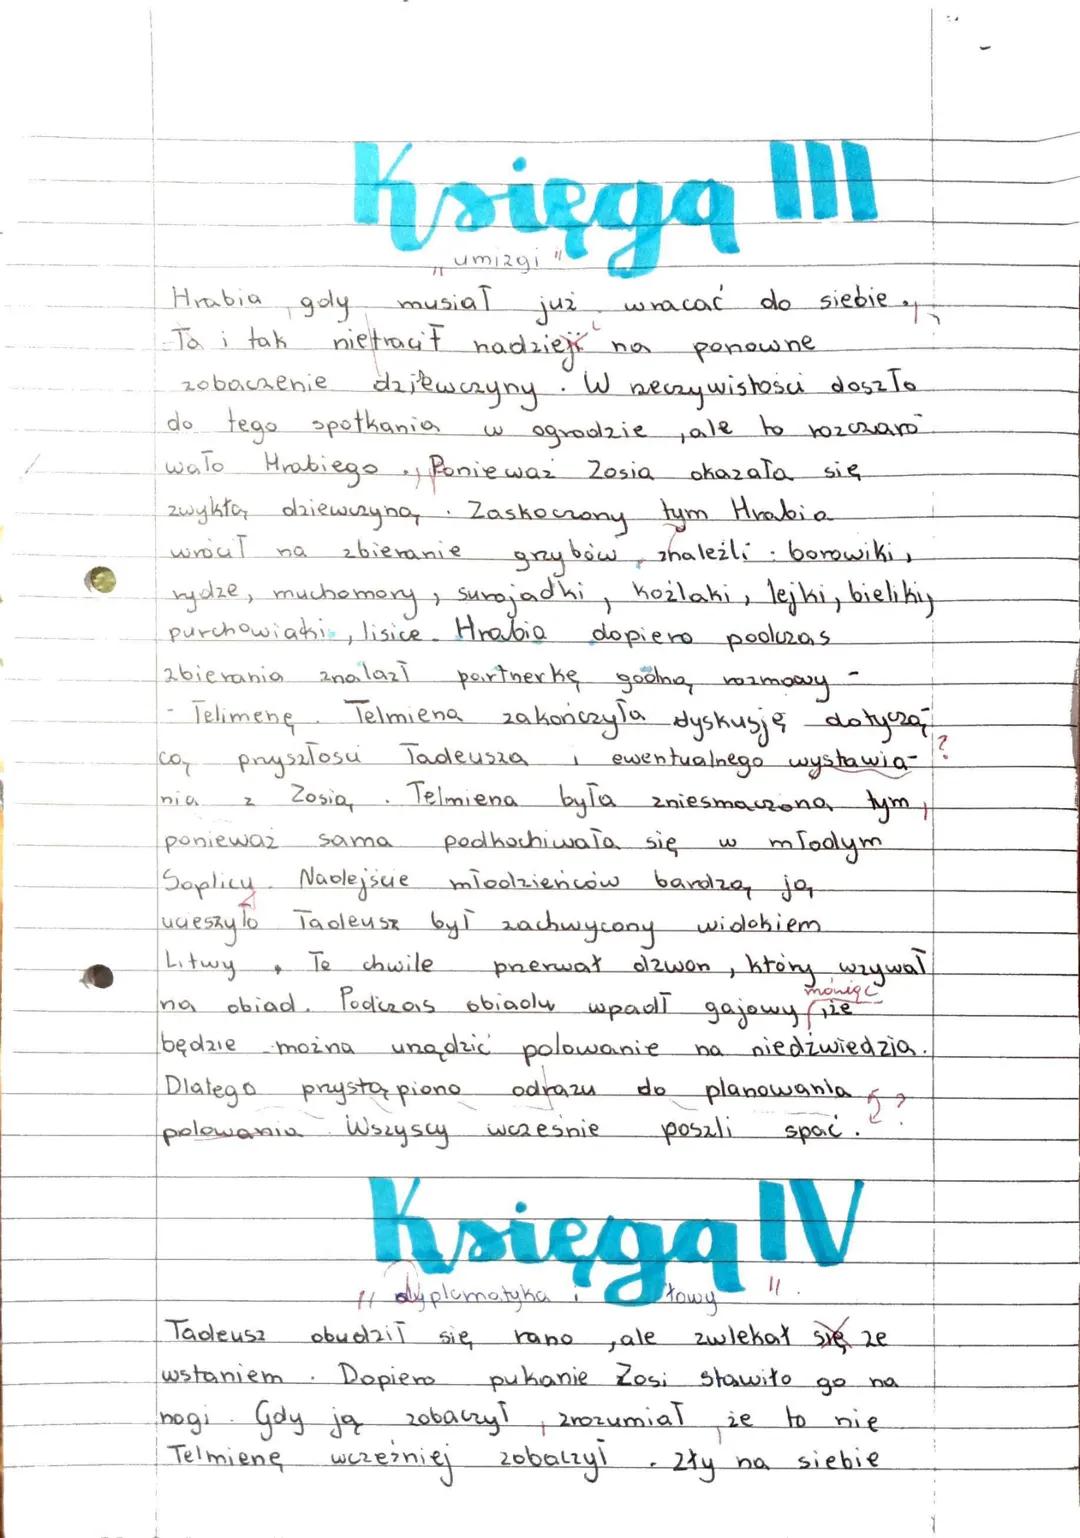 Księga III
„umizgi"
Hrabia gdy musiał już wracać do siebie.,
To i tak nietracił nadzieji na ponowne
zobaczenie dziewczyny. W rzeczywistości doszło
do tego spotkania w ogrodzie, ale to rozczaro
wało Hrabiego., Ponieważ Zosia okazała się
zwykłą dziewczyną. Zaskoczony tym Hrabia
wrócił na zbieranie grzybów, znaleźli: borowiki,
rydze, muchomory, surojadki, koźlaki, lejki, bieliki,
purchowiatki, lisice. Hrabia dopiero podczas
zbierania znalazł partnerkę godną rozmowy -
- Telimenę. Telmiena zakończyła dyskusję dotyczą-
cą przyszłości Tadeusza i ewentualnego wystawia- ?
nia z Zosią. Telmiena była zniesmaczona tym,
ponieważ sama podkochiwała się w młodym
Soplicy. Nadejście młodzieńców bardzo ją
ucieszyło Tadeusz był zachwycony widokiem
Litwy. Te chwile przerwał dzwon, który wzywał
na obiad. Podczas obiadu wpadł gajowy mówiąc, że
będzie można urządzić polowanie na niedźwiedzia.
Dlatego przystąpiono odrazu do planowania
polowania. Wszyscy wcześnie poszli spać. ?
Księga IV
„dyplomatyka i łowy".
Tadeusz obudził się rano, ale zwlekał się ze
wstaniem. Dopiero pukanie Zosi stawiło go na
nogi. Gdy ją zobaczył, zrozumiał, że to nie
Telmienę wcześniej zobaczył. Zły na siebie